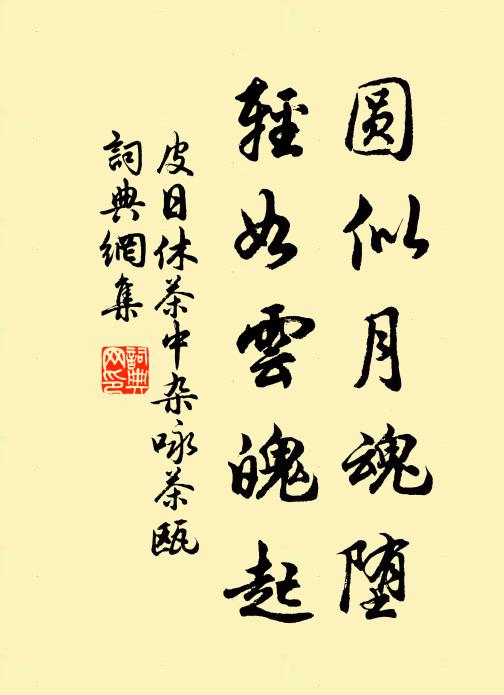 圆似月魂堕
輕如雲魄起
皮日休茶中杂咏茶瓯
詞典網集
詞典网印